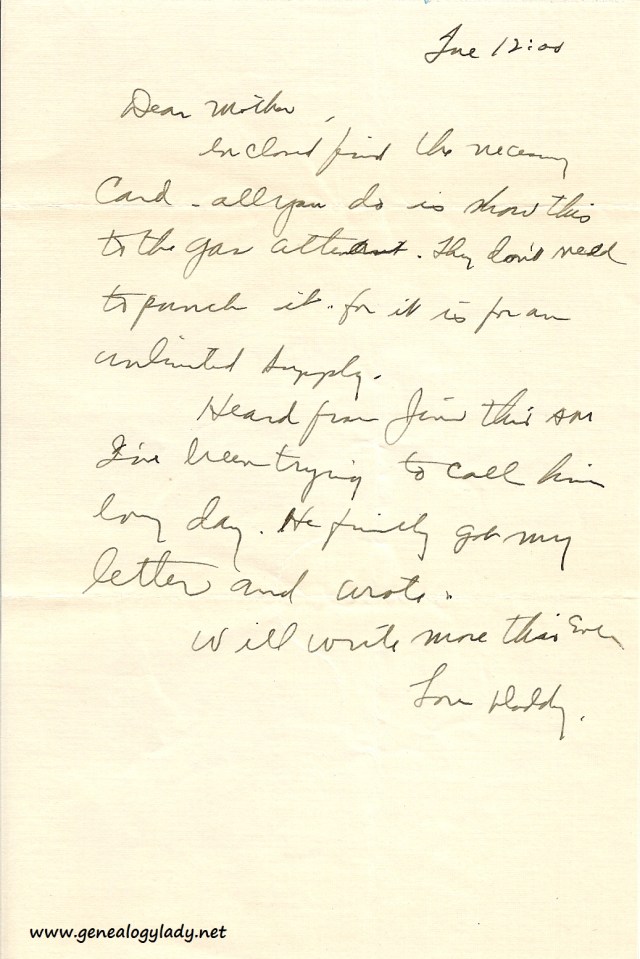 Tue 12:00
Dear Mother,
Enclosed find the necessary
Card - all you do is show this
to the gas attendant. They don't need
to punch it - for it is for an
unlimited supply.
Heard from Jim this am
I've been trying to call him
long day. He finally got my
letter and wrote.
Will write more this Even
Love Daddy.
www.genealogylady.net